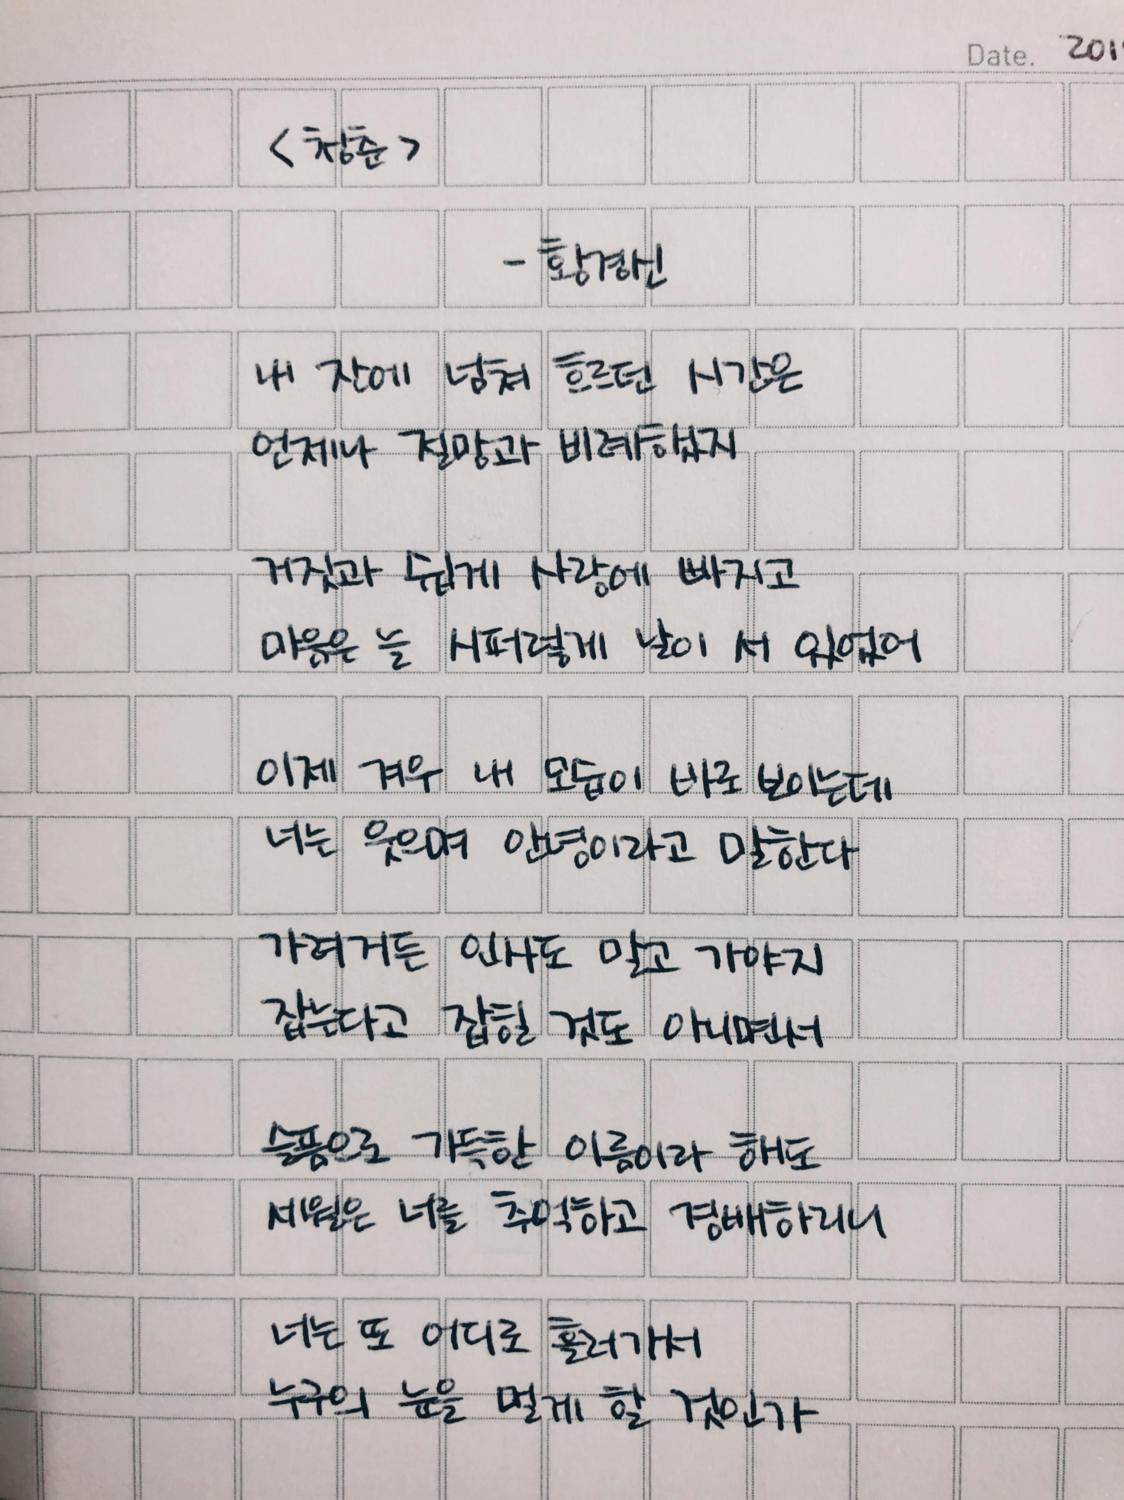 Date. 201
<청춘>
- 황경신
내 잔에 넘쳐 흐르던 시간은
언제나 절망과 비례했지
거짓과 쉽게 사랑에 빠지고
마음은 늘 시퍼렇게 날이 서 있었어
이제 겨우 내 모습이 바로 보이는데
너는 웃으며 안녕이라고 말한다
가려거든 인사도 말고 가야지
잡는다고 잡힐 것도 아니면서
슬픔으로 가득한 이름이라 해도
세월은 너를 추억하고 경배하리니
너는 또 어디로 흘러가서
누구의 눈을 멀게 할 것인가